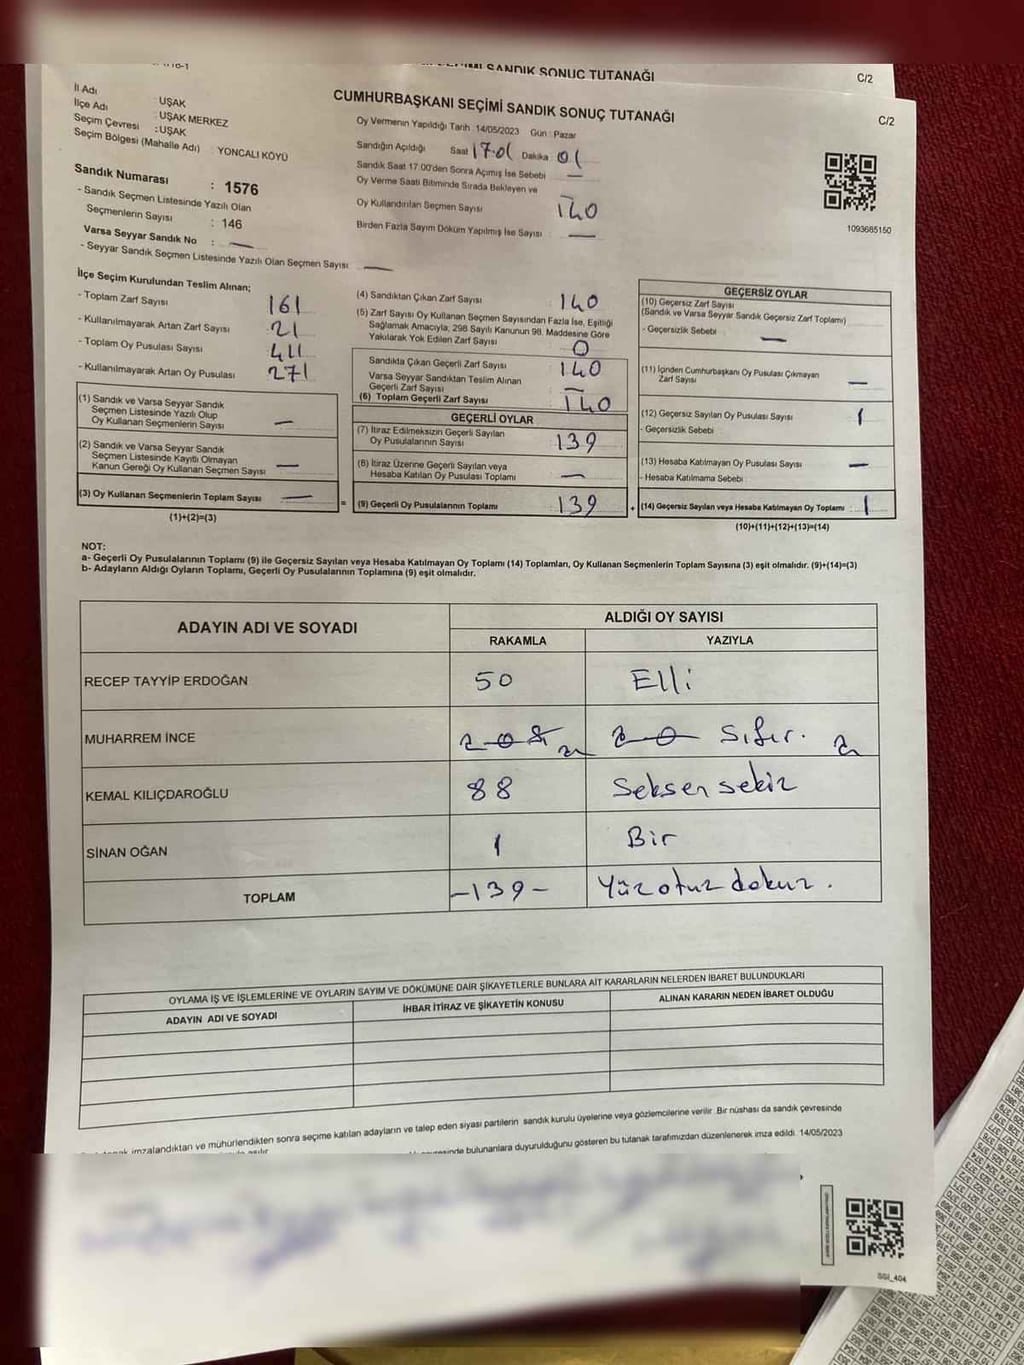 SANDIK SONUÇ TUTANAĞI
C/2
CUMHURBAŞKANI SEÇİMİ SANDIK SONUÇ TUTANAĞI
C/2
İl Adı : UŞAK
İlçe Adı : UŞAK MERKEZ
Seçim Çevresi : UŞAK
Seçim Bölgesi (Mahalle Adı) : YONCALI KÖYÜ
Sandık Numarası : 1576
- Sandık Seçmen Listesinde Yazılı Olan
Seçmenlerin Sayısı : 146
Varsa Seyyar Sandık No : —
- Seyyar Sandık Seçmen Listesinde Yazılı Olan Seçmen Sayısı —
Oy Vermenin Yapıldığı Tarih : 14/05/2023 Gün : Pazar
Sandığın Açıldığı Saat 17.01 Dakika 01
Sandık Saat 17.00'den Sonra Açımış İse Sebebi —
Oy Verme Saati Bitiminde Sırada Bekleyen ve —
Oy Kullandırılan Seçmen Sayısı 140
Birden Fazla Sayım Döküm Yapılmış İse Sayısı —
1093685150
İlçe Seçim Kurulundan Teslim Alınan;
- Toplam Zarf Sayısı 161
- Kullanılmayarak Artan Zarf Sayısı 21
- Toplam Oy Pusulası Sayısı 411
- Kullanılmayarak Artan Oy Pusulası 271
(1) Sandık ve Varsa Seyyar Sandık
Seçmen Listesinde Yazılı Olup
Oy Kullanan Seçmenlerin Sayısı —
(2) Sandık ve Varsa Seyyar Sandık
Seçmen Listesinde Kayıtlı Olmayan
Kanun Gereği Oy Kullanan Seçmen Sayısı —
(3) Oy Kullanan Seçmenlerin Toplam Sayısı —
(1)+(2)=(3)
=
(4) Sandıktan Çıkan Zarf Sayısı 140
(5) Zarf Sayısı Oy Kullanan Seçmen Sayısından Fazla İse, Eşitliği
Sağlamak Amacıyla, 298 Sayılı Kanunun 98. Maddesine Göre
Yakılarak Yok Edilen Zarf Sayısı 0
Sandıkta Çıkan Geçerli Zarf Sayısı 140
Varsa Seyyar Sandıktan Teslim Alınan
Geçerli Zarf Sayısı —
(6) Toplam Geçerli Zarf Sayısı 140
GEÇERLİ OYLAR
(7) İtiraz Edilmeksizin Geçerli Sayılan
Oy Pusulalarının Sayısı 139
(8) İtiraz Üzerine Geçerli Sayılan veya
Hesaba Katılan Oy Pusulası Toplamı —
(9) Geçerli Oy Pusulalarının Toplamı 139
+
GEÇERSİZ OYLAR
(10) Geçersiz Zarf Sayısı
(Sandık ve Varsa Seyyar Sandık Geçersiz Zarf Toplamı)
- Geçersizlik Sebebi —
(11) İçinden Cumhurbaşkanı Oy Pusulası Çıkmayan
Zarf Sayısı —
(12) Geçersiz Sayılan Oy Pusulası Sayısı 1
- Geçersizlik Sebebi
(13) Hesaba Katılmayan Oy Pusulası Sayısı —
- Hesaba Katılmama Sebebi
(14) Geçersiz Sayılan veya Hesaba Katılmayan Oy Toplamı : 1
(10)+(11)+(12)+(13)=(14)
NOT:
a- Geçerli Oy Pusulalarının Toplamı (9) ile Geçersiz Sayılan veya Hesaba Katılmayan Oy Toplamı (14) Toplamları, Oy Kullanan Seçmenlerin Toplam Sayısına (3) eşit olmalıdır. (9)+(14)=(3)
b- Adayların Aldığı Oyların Toplamı, Geçerli Oy Pusulalarının Toplamına (9) eşit olmalıdır.
ADAYIN ADI VE SOYADI
ALDIĞI OY SAYISI
RAKAMLA YAZIYLA
RECEP TAYYİP ERDOĞAN 50 Elli
MUHARREM İNCE Sıfır.
KEMAL KILIÇDAROĞLU 88 Seksen sekiz
SİNAN OĞAN 1 Bir
TOPLAM -139- Yüzotuz dokuz.
OYLAMA İŞ VE İŞLEMLERİNE VE OYLARIN SAYIM VE DÖKÜMÜNE DAİR ŞİKAYETLERLE BUNLARA AİT KARARLARIN NELERDEN İBARET BULUNDUKLARI
ADAYIN ADI VE SOYADI İHBAR İTİRAZ VE ŞİKAYETİN KONUSU ALINAN KARARIN NEDEN İBARET OLDUĞU
imzalandıktan ve mühürlendikten sonra seçime katılan adayların ve talep eden siyasi partilerin sandık kurulu üyelerine veya gözlemcilerine verilir. Bir nüshası da sandık çevresinde
bulunanlara duyurulduğunu gösteren bu tutanak tarafımızdan düzenlenerek imza edildi. 14/05/2023
SSI_404